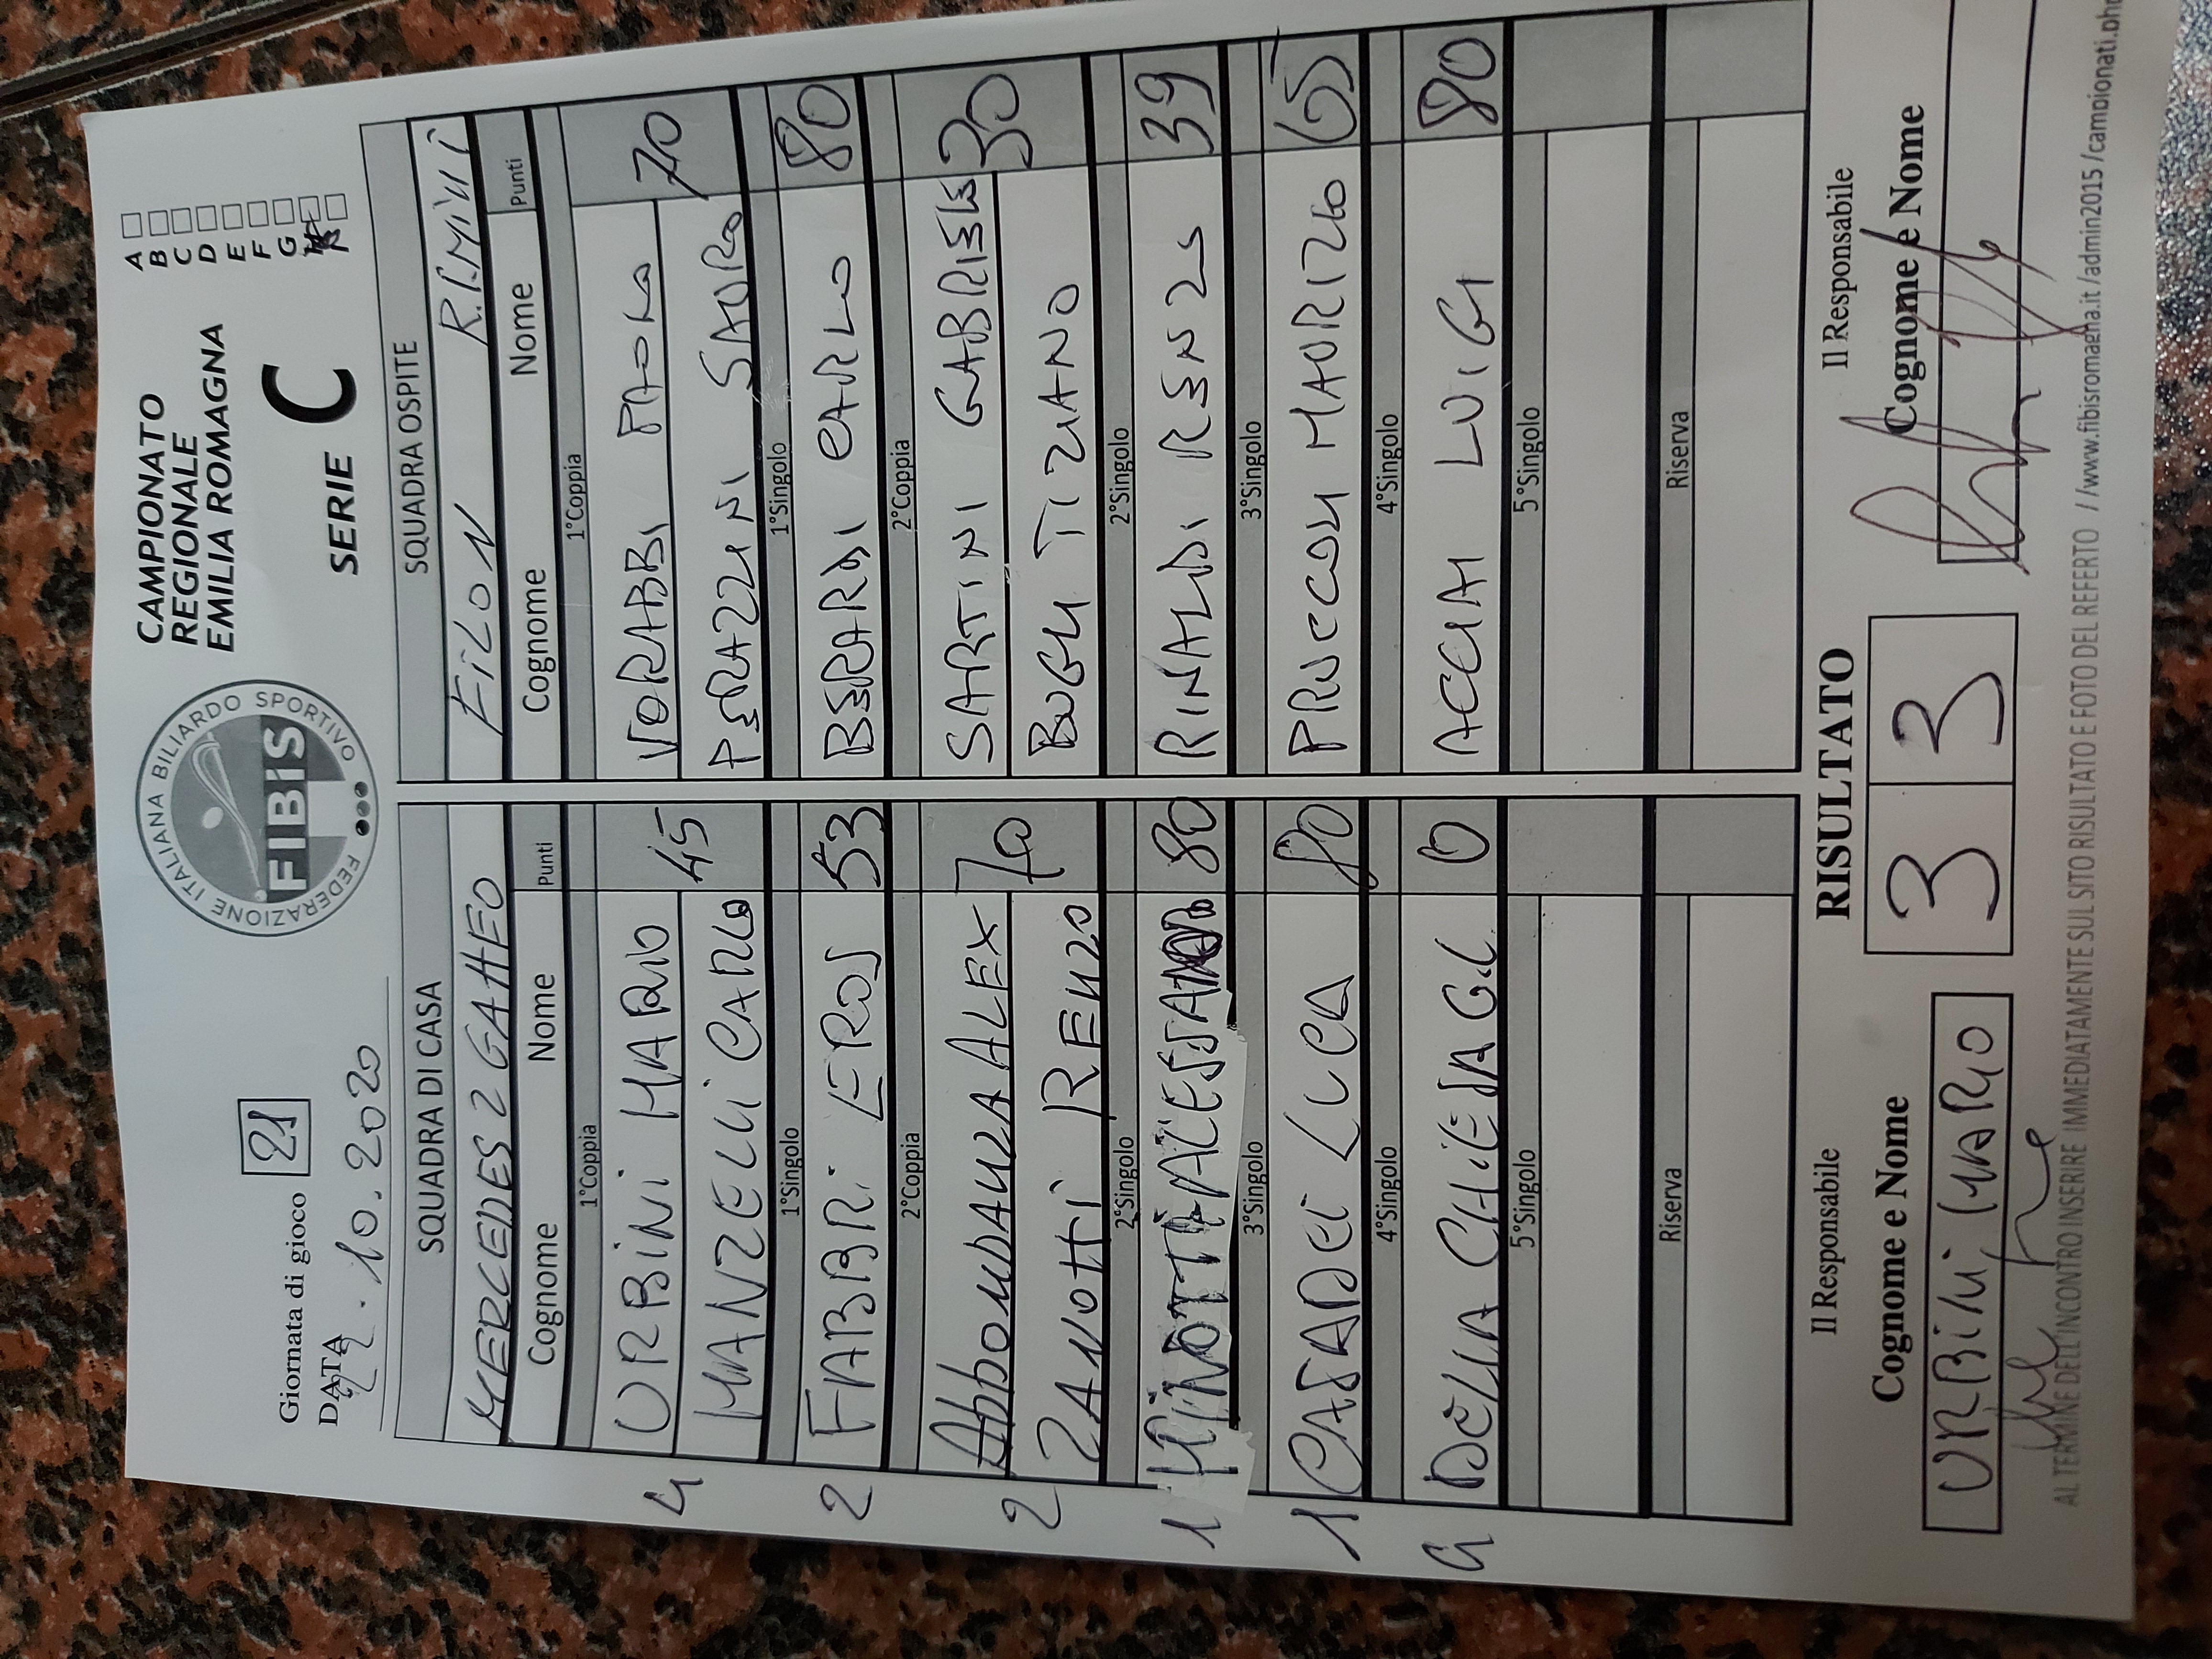 Giornata di gioco 21
DATA
.10.2020
FEDERAZIONE ITALIANA BILIARDO SPORTIVO
FIBiS
CAMPIONATO
REGIONALE
EMILIA ROMAGNA
SERIE C
A
B
C
D
E
F
G
SQUADRA DI CASA
MERCEDES 2 GATTEO
Cognome Nome Punti
1°Coppia
4 URBiNi MARIO
MANZELLi CARLO 45
1°Singolo
2 FABBRi EROS 53
2°Coppia
2 AbboNDANZA ALEX 70
ZANOTTI RENZO
2°Singolo
1 MiNOTTi ALESSANDRO 80
3°Singolo
1 CASADEi LUCA 80
4°Singolo
4 DELLA CHiESA G.L 0
5°Singolo
Riserva
SQUADRA OSPITE
FiLON RiMiNi
Cognome Nome Punti
1°Coppia
VORABBI PAOLO 70
PERAZZINI SAURO
1°Singolo
BERARDI CARLO 80
2°Coppia
SARTINI GABRIELE 30
BUGLI TIZIANO
2°Singolo
RINALDI RENZO 39
3°Singolo
PRUCCOLI MAURIZIO 65
4°Singolo
ACCIAI LUIGI 80
5°Singolo
Riserva
Il Responsabile
Cognome e Nome
URBiNi MARIO
RISULTATO
3 3
Il Responsabile
Cognome e Nome
AL TERMINE DELL'INCONTRO INSERIRE IMMEDIATAMENTE SUL SITO RISULTATO E FOTO DEL REFERTO //www.fibisromagna.it /admin2015 /campionati.php